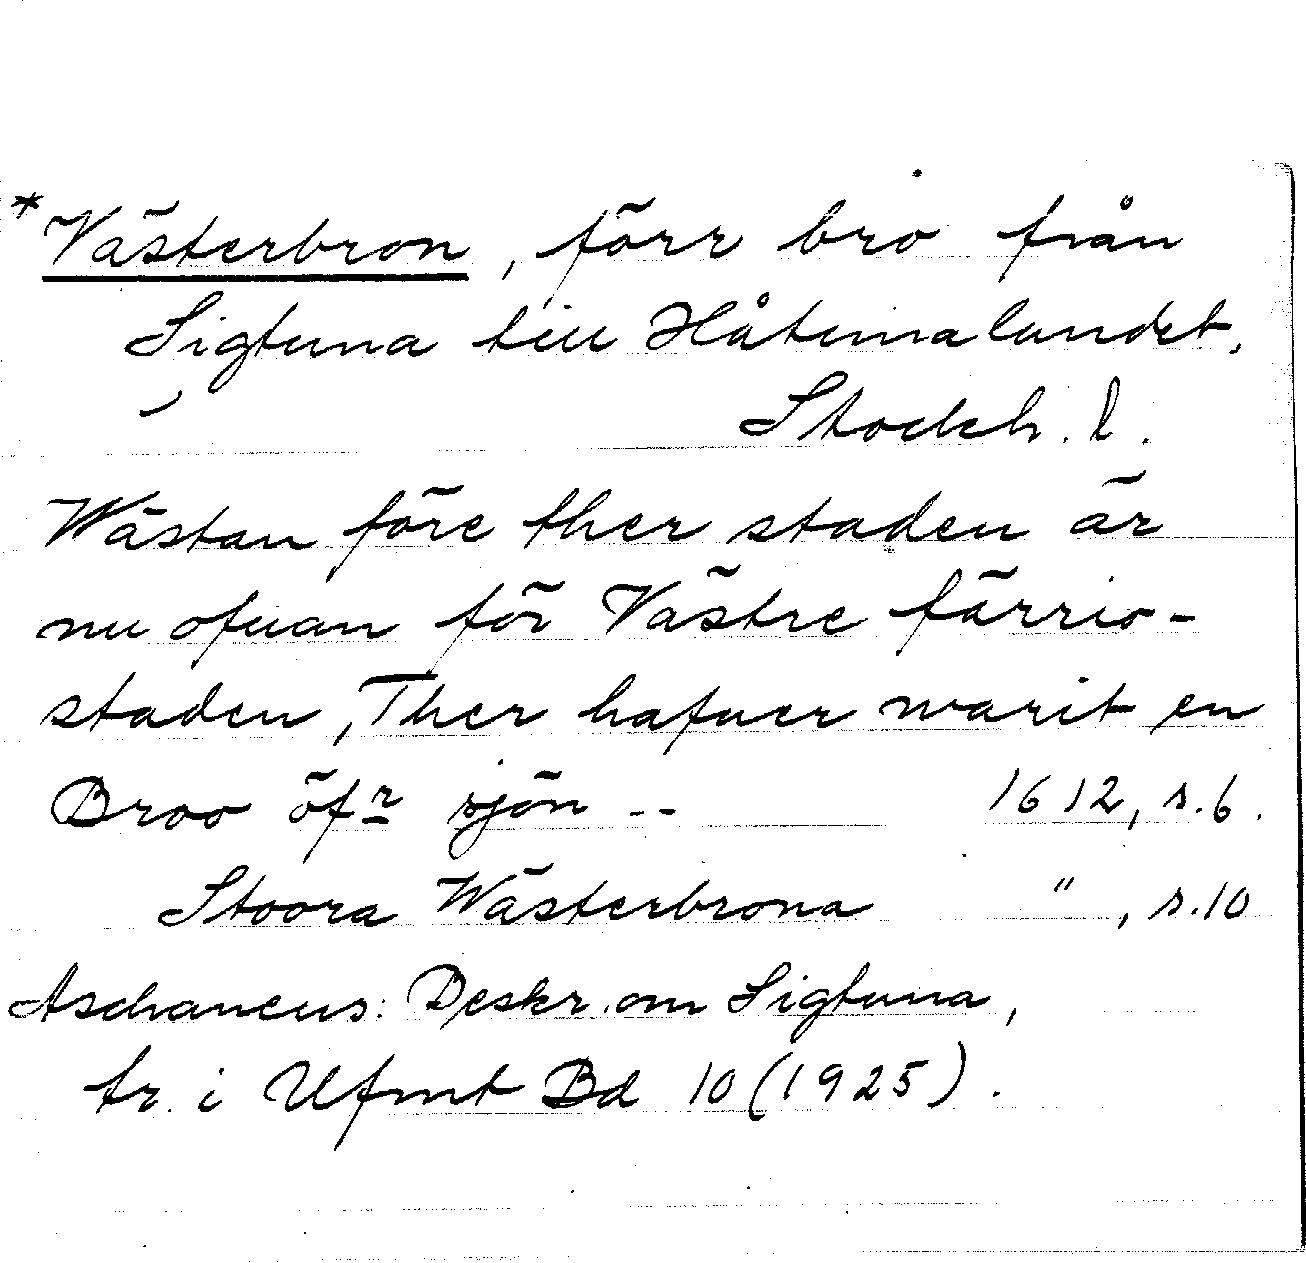 *Västerbron, förr bro från
Sigtuna till Håtunalandet,
Stockh. l.
Wästan före ther staden är
nu ofuan för Västre färrio-
staden, Ther hafuer warit en
Broo öfr sjön -- 1612, s. 6.
Stoora Wästerbrona " , s. 10
Aschaneus: Deskr. om Sigtuna,
tr. i Ufmt Bd 10 (1925).